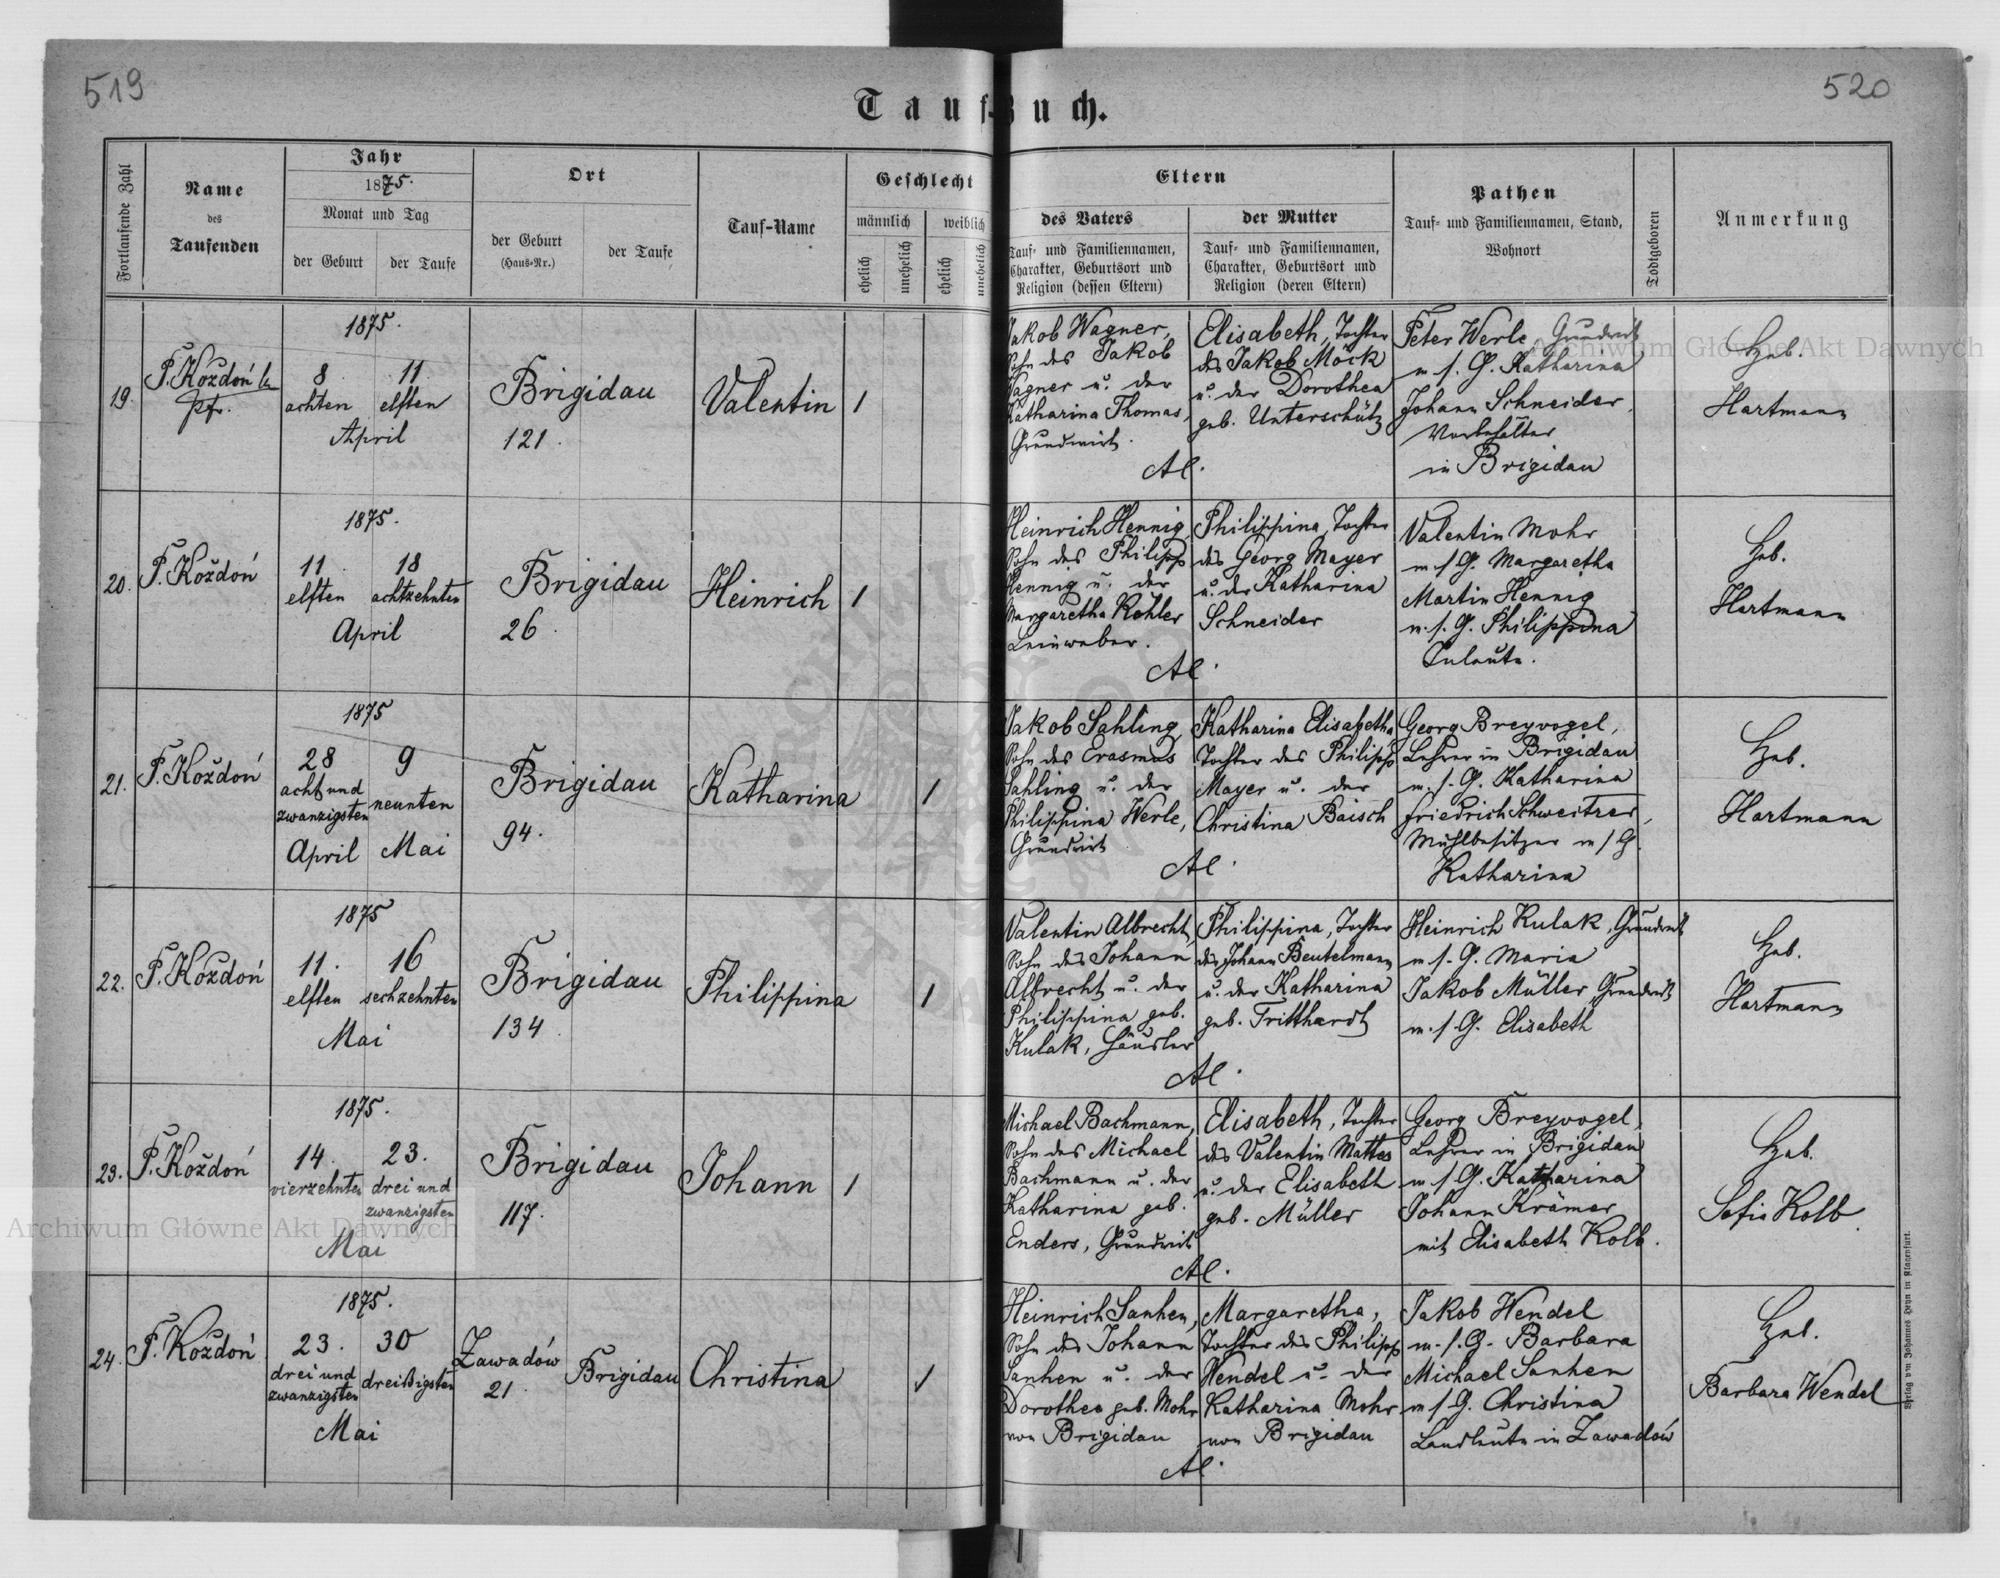 519
520
Tauf-Buch.
Fortlaufende Zahl
Name
des
Taufenden
Jahr
1875.
Monat und Tag
der Geburt
der Taufe
Ort
der Geburt
(Haus-Nr.)
der Taufe
Tauf-Name
Geschlecht
männlich
weiblich
ehelich
unehelich
ehelich
unehelich
Eltern
des Vaters
Tauf- und Familiennamen,
Charakter, Geburtsort und
Religion (dessen Eltern)
der Mutter
Tauf- und Familiennamen,
Charakter, Geburtsort und
Religion (deren Eltern)
Pathen
Tauf- und Familiennamen, Stand,
Wohnort
Todtgeboren
Anmerkung
19.
F. Koždoń
Pfr.
1875.
8
11
achten
elften
April
Brigidau
121.
Valentin
1
Jakob Wagner,
Sohn des Jakob
Wagner u. der
Katharina Thomas,
Grundwirt.
Elisabeth, Tochter
des Jakob Möck
u. der Dorothea
geb. Unterschütz
A.C.
Peter Werle, Grundwirt
m. s. G. Katharina
Johann Schneider,
Vorbehalter
in Brigidau
Heb.
Hartmann
20.
F. Koždoń
1875.
11.
18
elften
achtzehnten
April
Brigidau
26.
Heinrich
1
Heinrich Hennig,
Sohn des Philipp
Hennig u. der
Margaretha Köhler
Leinweber.
Philippina, Tochter
des Georg Mayer
u. der Katharina
Schneider
A.C.
Valentin Mohr
m. s. G. Margaretha
Martin Hennig
m. s. G. Philippina
Inleute.
Heb.
Hartmann
21.
F. Koždoń
1875
28
9
acht und
zwanzigsten
neunten
April
Mai
Brigidau
94.
Katharina
1
Jakob Sahling,
Sohn des Erasmus
Sahling u. der
Philippina Werle,
Grundwirt
Katharina Elisabetha
Tochter des Philipp
Mayer u. der
Christina Baisch
A.C.
Georg Breyvogel,
Lehrer in Brigidau
m. s. G. Katharina
Friedrich Schweitzer,
Mühlbesitzer m. s. G.
Katharina
Heb.
Hartmann
22.
F. Koždoń
1875
11.
16
elften
sechzehnten
Mai
Brigidau
134.
Philippina
1
Valentin Albrecht,
Sohn des Johann
Albrecht u. der
Philippina geb.
Kulak, Häusler
Philippina, Tochter
des Johann Beutelmann
u. der Katharina
geb. Tritthardt
A.C.
Heinrich Kulak, Grundwirt
m. s. G. Maria
Jakob Müller, Grundwirt
m. s. G. Elisabeth
Heb.
Hartmann
23.
F. Koždoń
1875.
14.
23.
vierzehnten
drei und
zwanzigsten
Mai
Brigidau
117.
Johann
1
Michael Bachmann,
Sohn des Michael
Bachmann u. der
Katharina geb.
Enders, Grundwirt
Elisabeth, Tochter
des Valentin Mattes
u. der Elisabeth
geb. Müller
A.C.
Georg Breyvogel,
Lehrer in Brigidau
m. s. G. Katharina
Johann Krämer
mit Elisabeth Kolb.
Heb.
Sofie Kolb
24.
F. Koždoń
1875.
23.
30
drei und
zwanzigsten
dreißigsten
Mai
Zawadów
21.
Brigidau
Christina
1
Heinrich Sanhen,
Sohn des Johann
Sanhen u. der
Dorothea geb. Mohr
von Brigidau
Margaretha,
Tochter des Philipp
Wendel u. der
Katharina Mohr
von Brigidau
A.C.
Jakob Wendel
m. s. G. Barbara
Michael Sanhen
m. s. G. Christina
Landleute in Zawadów
Heb.
Barbara Wendel
Verlag von Johannes Heyn in Klagenfurt.
Archiwum Główne Akt Dawnych
Archiwum Główne Akt Dawnych